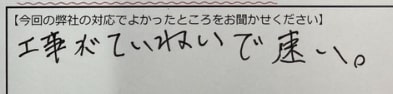 【今回の弊社の対応でよかったところをお聞かせください】
工事がていねいで速い。